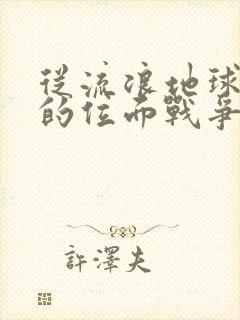 從流浪地球
的位面戰爭
許澤夫